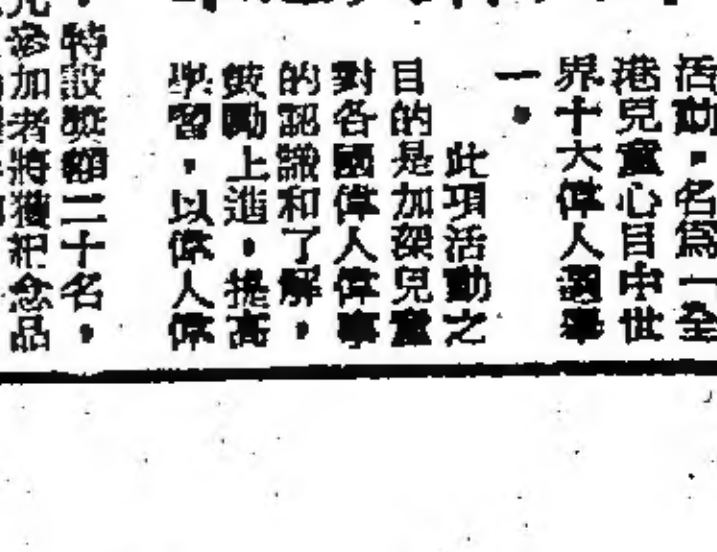 活動，名爲「全
港兒童心目中世
界十大偉人選舉
」。
此項活動之
目的是加深兒童
對各國偉人偉事
的認識和了解，
鼓勵上進，提高
學習，以偉人偉
，特設獎額二十名，
參加者將獲紀念品